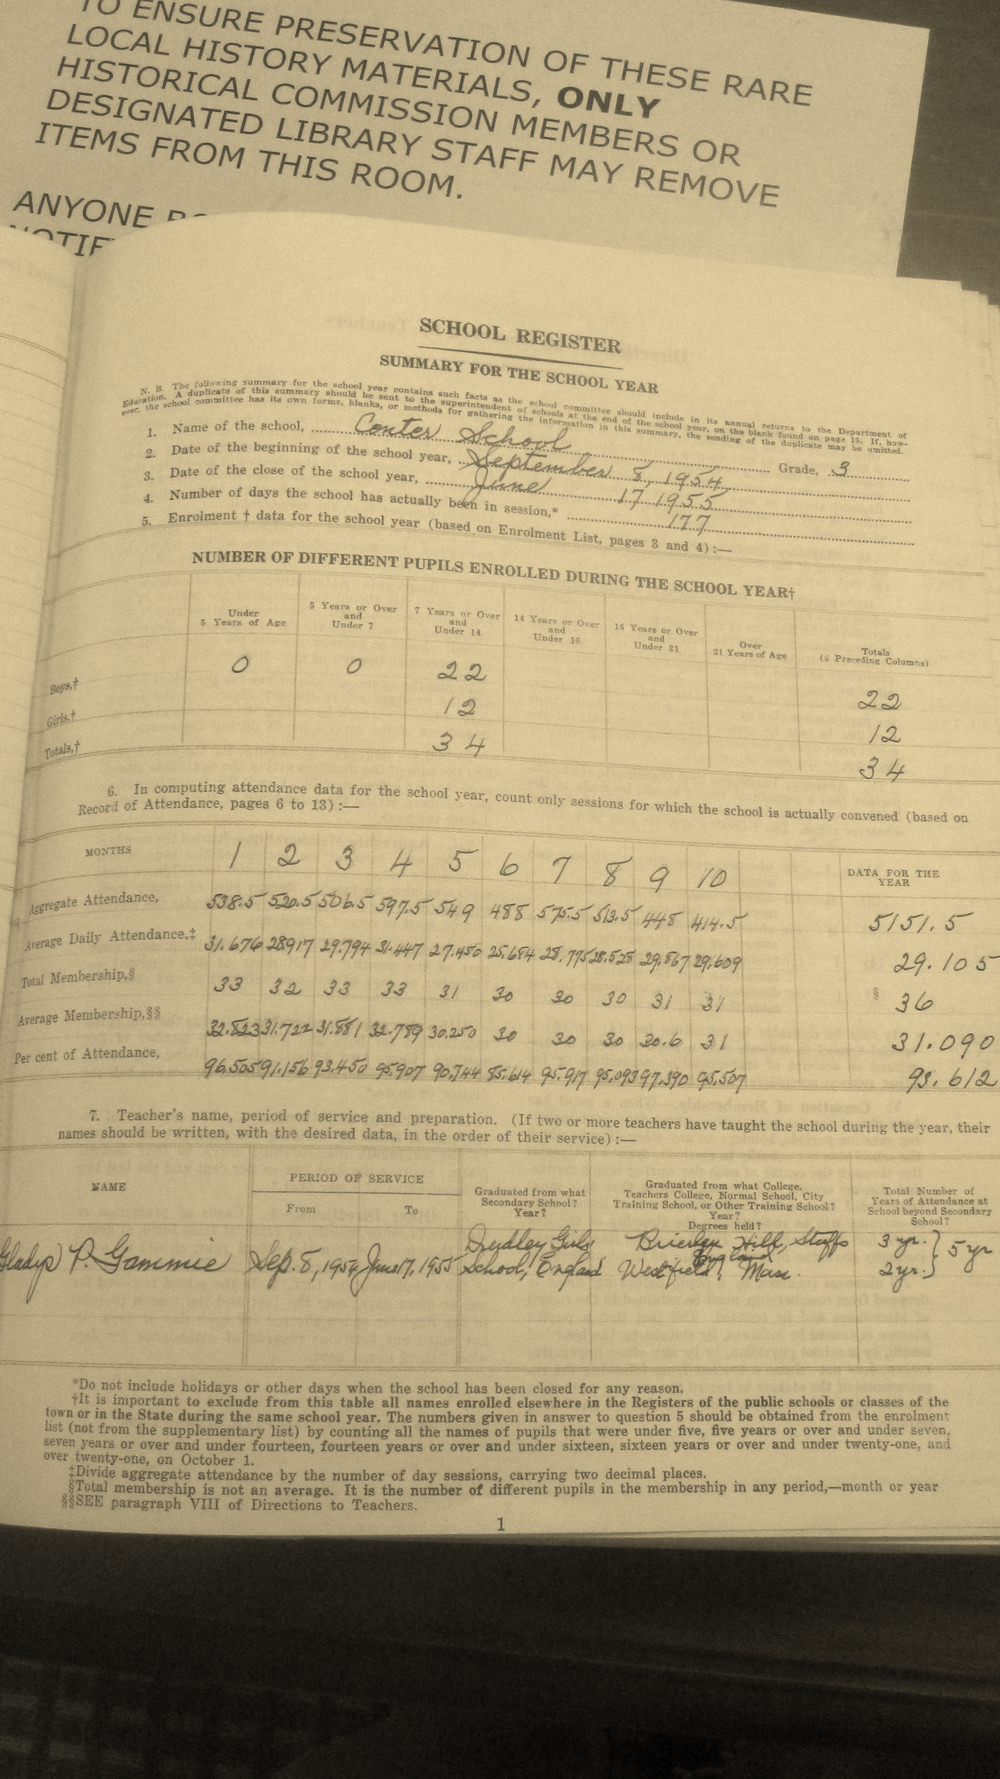 TO ENSURE PRESERVATION OF THESE RARE
LOCAL HISTORY MATERIALS, ONLY
HISTORICAL COMMISSION MEMBERS OR
DESIGNATED LIBRARY STAFF MAY REMOVE
ITEMS FROM THIS ROOM.
ANYONE
SCHOOL REGISTER
SUMMARY FOR THE SCHOOL YEAR
N. B. The following summary for the school year contains such facts as the school committee should include in its annual returns to the Department of
Education. A duplicate of this summary should be sent to the superintendent of schools at the end of the school year, on the blank found on page 15. If, how-
ever, the school committee has its own forms, blanks, or methods for gathering the information in this summary, the sending of the duplicate may be omitted.
1. Name of the school, Center School Grade, 3
2. Date of the beginning of the school year, September 8, 1954
3. Date of the close of the school year, June 17 1955
4. Number of days the school has actually been in session,* 177
5. Enrolment † data for the school year (based on Enrolment List, pages 3 and 4):—
NUMBER OF DIFFERENT PUPILS ENROLLED DURING THE SCHOOL YEAR†
Under 5 Years of Age 5 Years or Over and Under 7 7 Years or Over and Under 14 14 Years or Over and Under 16 16 Years or Over and Under 21 Over 21 Years of Age Totals (6 Preceding Columns)
Boys,† 0 0 22 22
Girls,† 12 12
Totals,† 34 34
6. In computing attendance data for the school year, count only sessions for which the school is actually convened (based on
Record of Attendance, pages 6 to 13):—
MONTHS 1 2 3 4 5 6 7 8 9 10 DATA FOR THE YEAR
Aggregate Attendance, 538.5 520.5 506.5 597.5 549 488 575.5 513.5 448 414.5 5151.5
Average Daily Attendance,‡ 31.676 28.917 29.794 31.447 27.450 25.684 28.775 28.528 29.867 29.609 29.105
Total Membership,§ 33 32 33 33 31 30 30 30 31 31 § 36
Average Membership,§§ 32.823 31.722 31.881 32.789 30.250 30 30 30 30.6 31 31.090
Per cent of Attendance, 96.505 91.156 93.450 95.907 90.744 85.614 95.917 95.093 97.390 95.507 93.612
7. Teacher's name, period of service and preparation. (If two or more teachers have taught the school during the year, their
names should be written, with the desired data, in the order of their service):—
NAME PERIOD OF SERVICE From To Graduated from what Secondary School? Year? Graduated from what College, Teachers College, Normal School, City Training School, or Other Training School? Year? Degrees held? Total Number of Years of Attendance at School beyond Secondary School?
Gladys P. Gammie Sep. 8, 1954 June 17, 1955 Dudley Girls School, England Brierley Hill, Staffs England 3 yr. } 5 yr
Westfield, Mass. 2 yr.
*Do not include holidays or other days when the school has been closed for any reason.
†It is important to exclude from this table all names enrolled elsewhere in the Registers of the public schools or classes of the
town or in the State during the same school year. The numbers given in answer to question 5 should be obtained from the enrolment
list (not from the supplementary list) by counting all the names of pupils that were under five, five years or over and under seven,
seven years or over and under fourteen, fourteen years or over and under sixteen, sixteen years or over and under twenty-one, and
over twenty-one, on October 1.
‡Divide aggregate attendance by the number of day sessions, carrying two decimal places.
§Total membership is not an average. It is the number of different pupils in the membership in any period,—month or year
§§SEE paragraph VIII of Directions to Teachers.
1